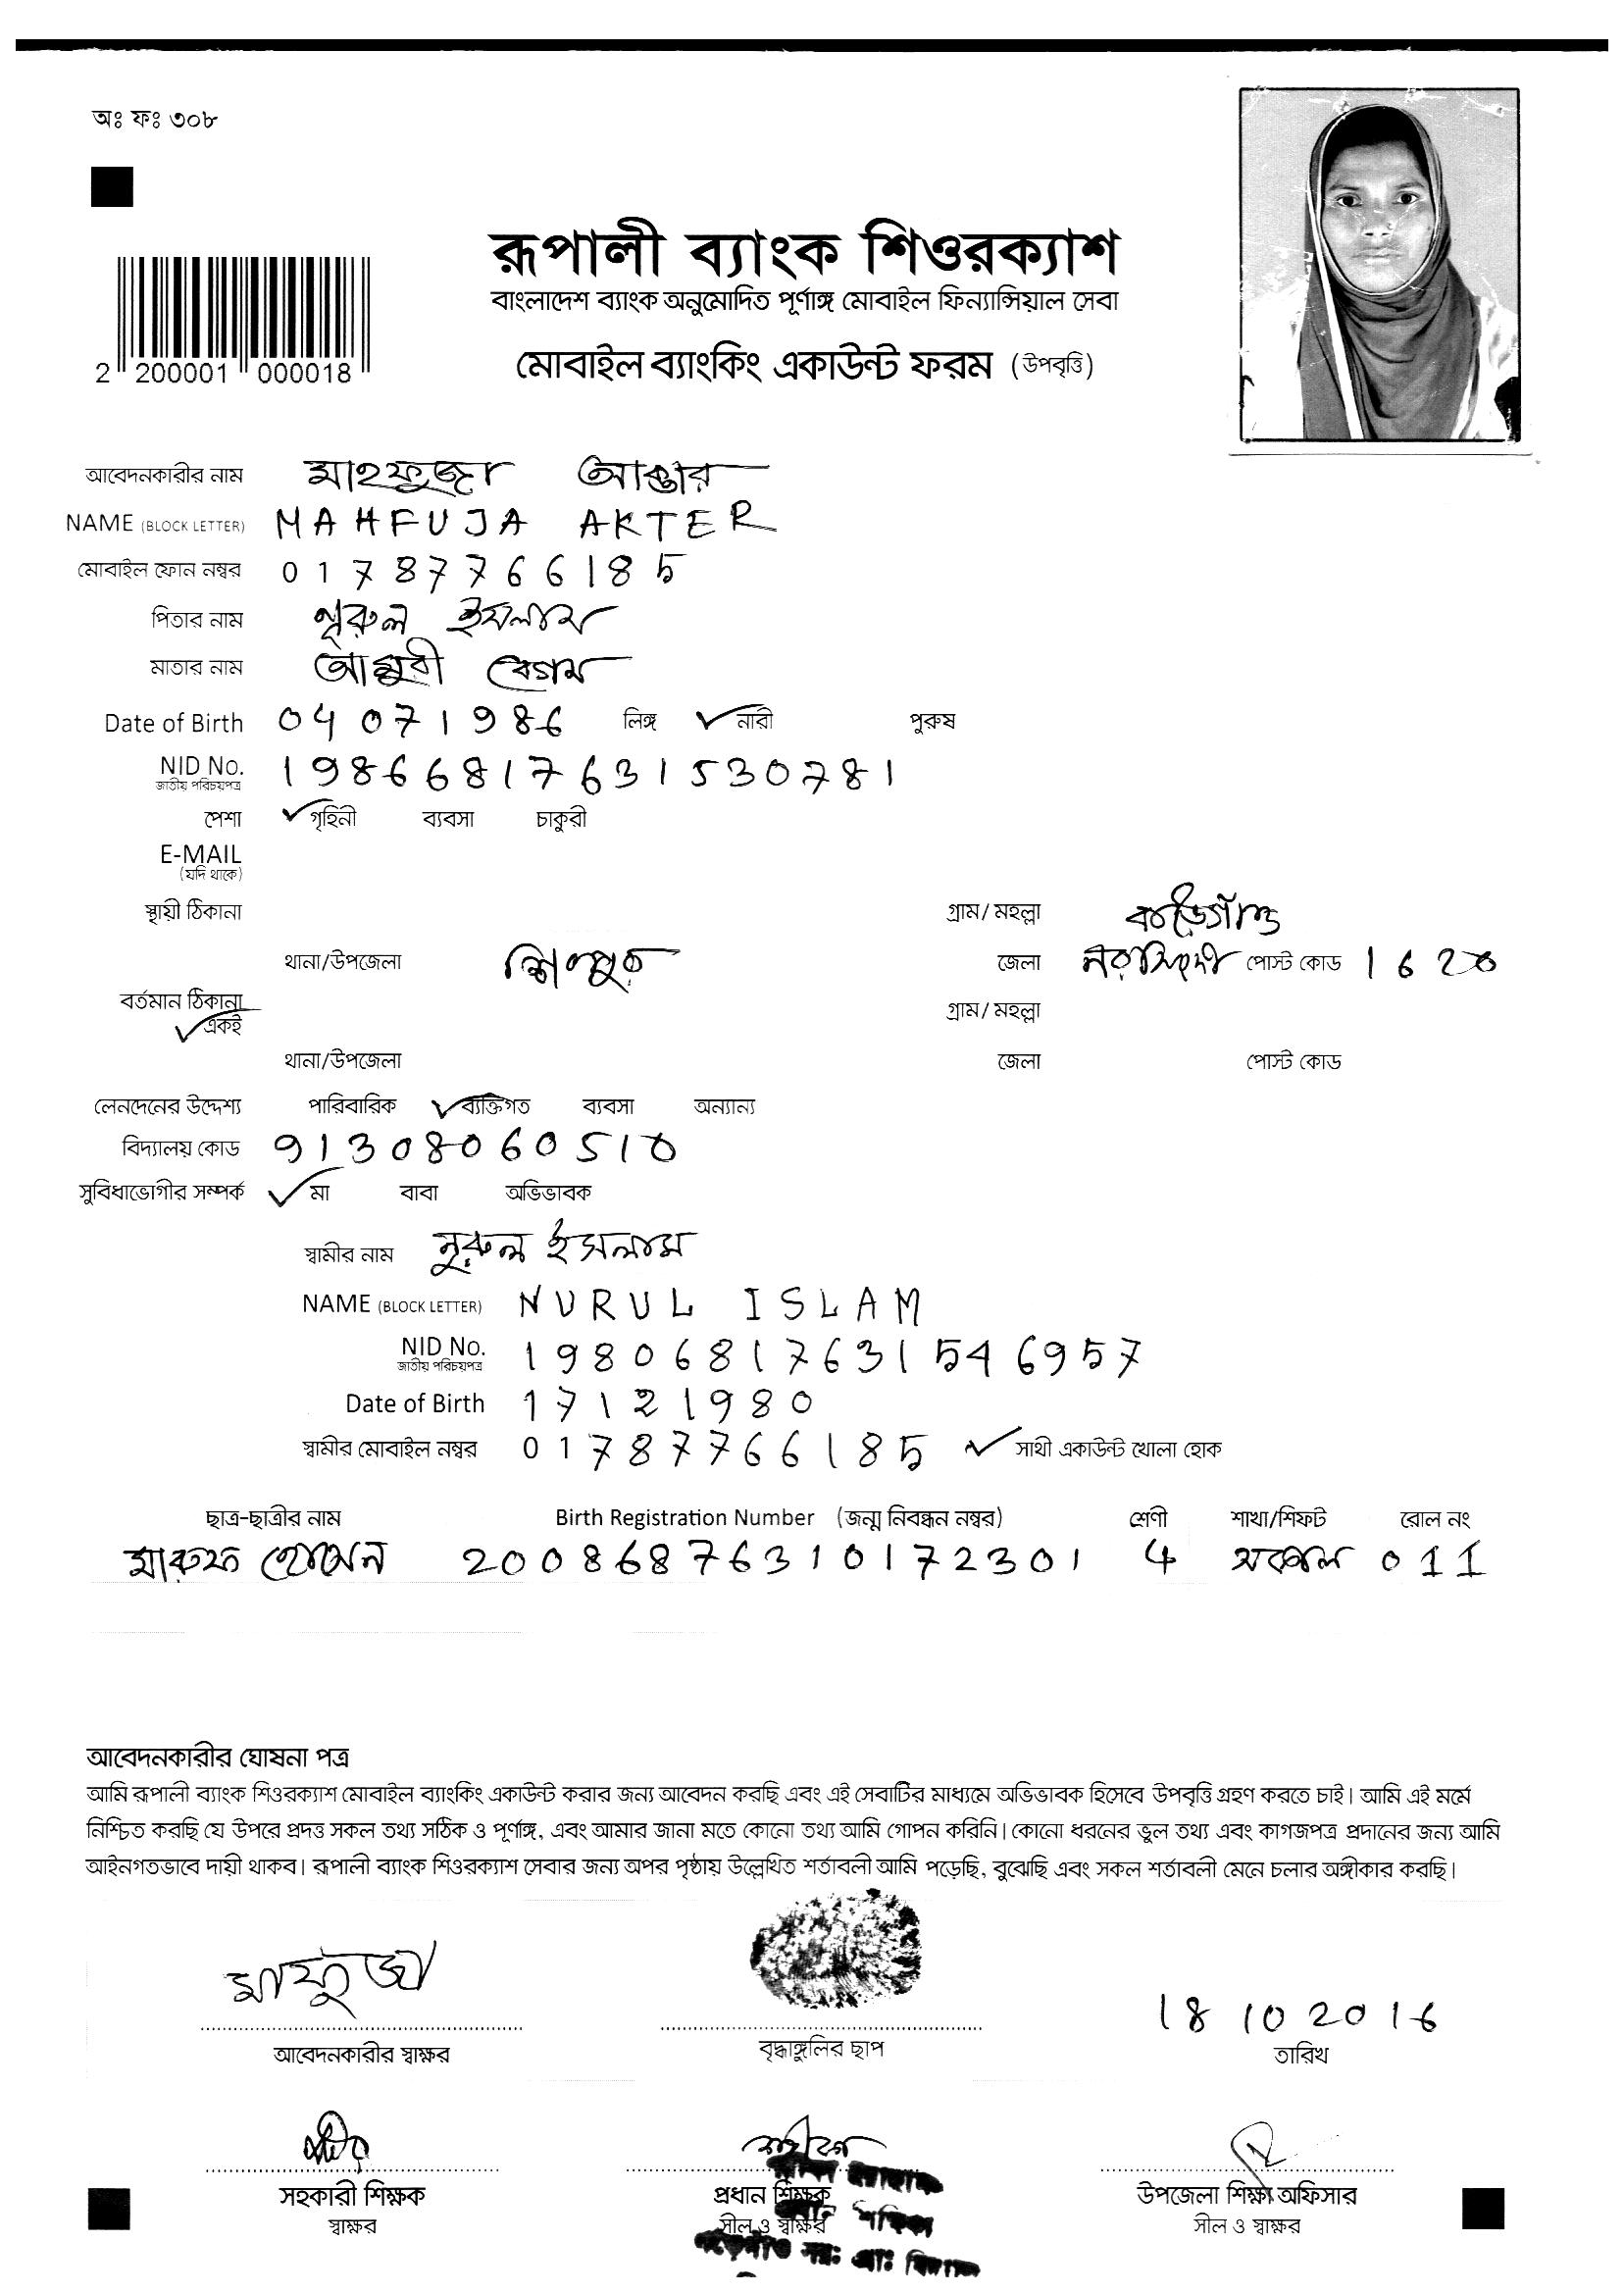 অঃ ফঃ ৩০৮
রূপালী ব্যাংক শিওরক্যাশ
বাংলাদেশ ব্যাংক অনুমোদিত পূর্ণাঙ্গ মোবাইল ফিন্যান্সিয়াল সেবা
2 200001 000018
মোবাইল ব্যাংকিং একাউন্ট ফরম (উপবৃত্তি)
আবেদনকারীর নাম মাহফুজা আক্তার
NAME (BLOCK LETTER) MAHFUJA AKTER
মোবাইল ফোন নম্বর 01787766185
পিতার নাম নূরুল ইসলাম
মাতার নাম বেগম
Date of Birth 04071986 লিঙ্গ নারী পুরুষ
NID No. 19866817631530781
জাতীয় পরিচয়পত্র
পেশা গৃহিনী ব্যবসা চাকুরী
E-MAIL
(যদি থাকে)
স্থায়ী ঠিকানা গ্রাম/ মহল্লা
থানা/উপজেলা শিবপুর জেলা নরসিংদী পোস্ট কোড 1620
বর্তমান ঠিকানা গ্রাম/ মহল্লা
একই
থানা/উপজেলা জেলা পোস্ট কোড
লেনদেনের উদ্দেশ্য পারিবারিক ব্যক্তিগত ব্যবসা অন্যান্য
বিদ্যালয় কোড 91308060510
সুবিধাভোগীর সম্পর্ক মা বাবা অভিভাবক
স্বামীর নাম নুরুল ইসলাম
NAME (BLOCK LETTER) NURUL ISLAM
NID No. 19806817631546957
জাতীয় পরিচয়পত্র
Date of Birth 17121980
স্বামীর মোবাইল নম্বর 01787766185 সাথী একাউন্ট খোলা হোক
ছাত্র-ছাত্রীর নাম Birth Registration Number (জন্ম নিবন্ধন নম্বর) শ্রেণী শাখা/শিফট রোল নং
মারুফ হোসেন 20086876310172301 4 সকাল 011
আবেদনকারীর ঘোষনা পত্র
আমি রূপালী ব্যাংক শিওরক্যাশ মোবাইল ব্যাংকিং একাউন্ট করার জন্য আবেদন করছি এবং এই সেবাটির মাধ্যমে অভিভাবক হিসেবে উপবৃত্তি গ্রহণ করতে চাই। আমি এই মর্মে
নিশ্চিত করছি যে উপরে প্রদত্ত সকল তথ্য সঠিক ও পূর্ণাঙ্গ, এবং আমার জানা মতে কোনো তথ্য আমি গোপন করিনি। কোনো ধরনের ভুল তথ্য এবং কাগজপত্র প্রদানের জন্য আমি
আইনগতভাবে দায়ী থাকব। রূপালী ব্যাংক শিওরক্যাশ সেবার জন্য অপর পৃষ্ঠায় উল্লেখিত শর্তাবলী আমি পড়েছি, বুঝেছি এবং সকল শর্তাবলী মেনে চলার অঙ্গীকার করছি।
মাফুজা
18 10 2016
আবেদনকারীর স্বাক্ষর বৃদ্ধাঙ্গুলির ছাপ তারিখ
সহকারী শিক্ষক প্রধান শিক্ষক উপজেলা শিক্ষা অফিসার
স্বাক্ষর সীল ও স্বাক্ষর সীল ও স্বাক্ষর